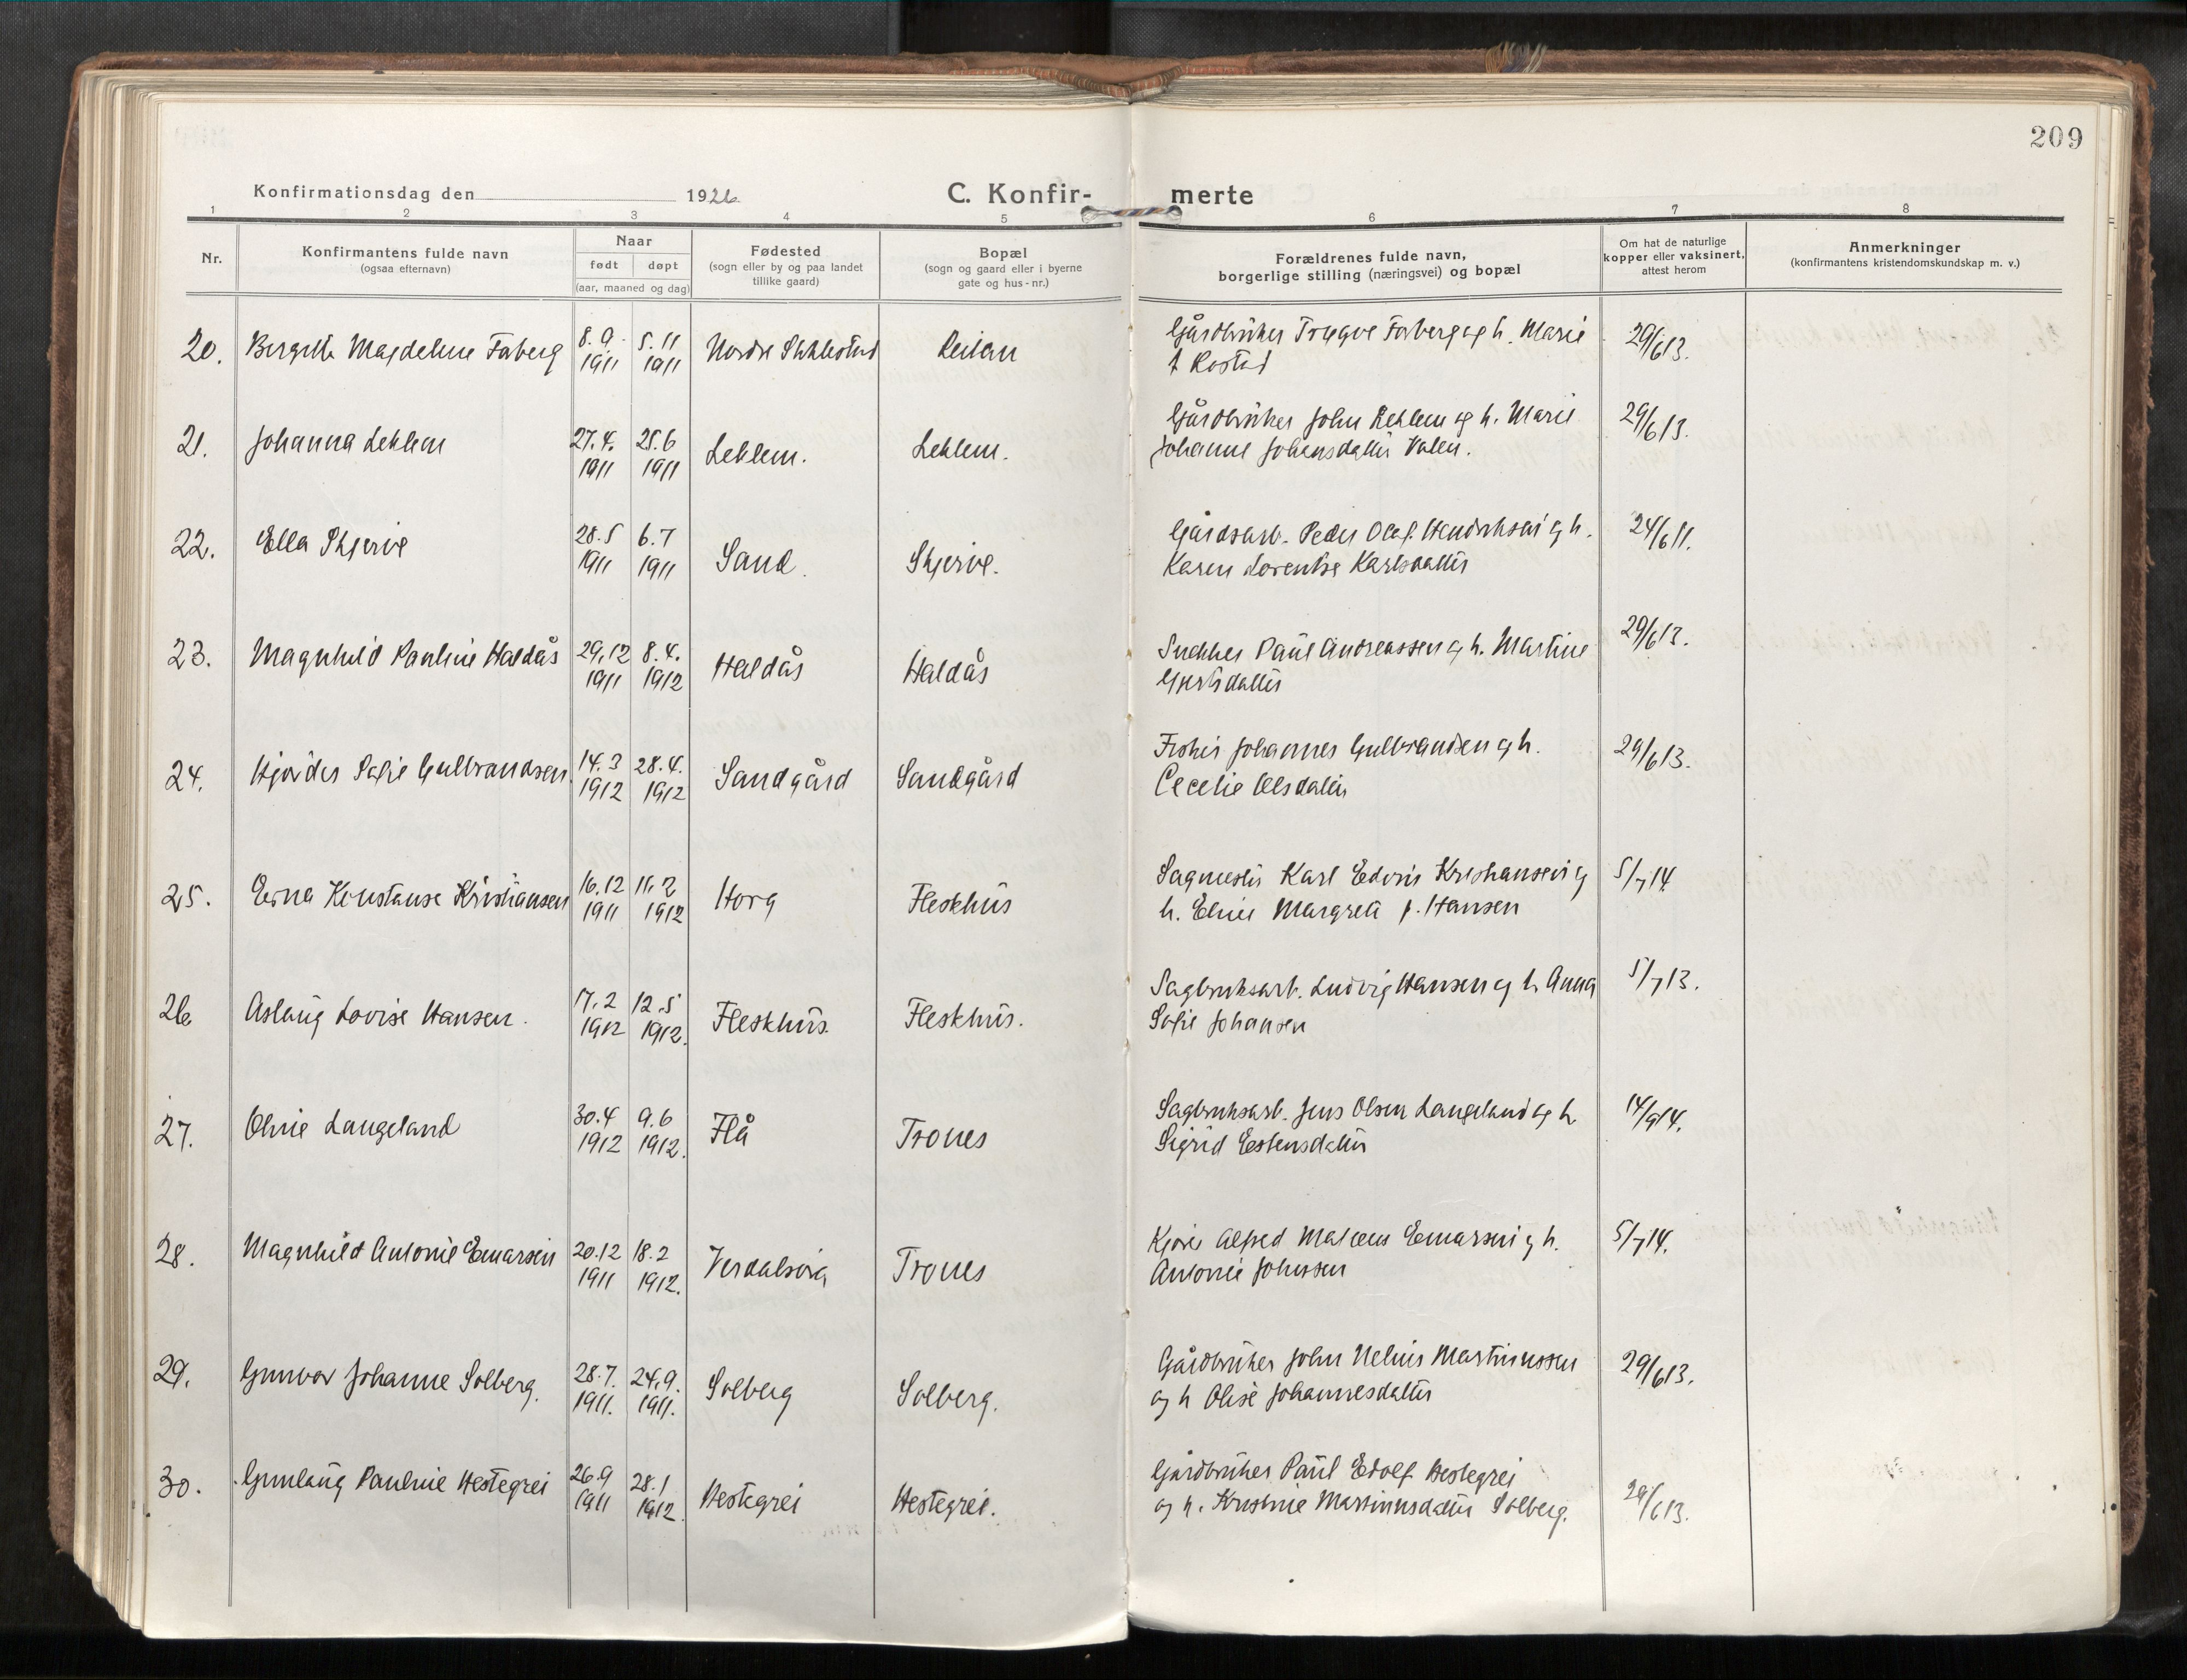 209
Konfirmationsdag den 1926 C. Konfir- merte
1 2 3 4 5 6 7 8
Nr. Konfirmantens fulde navn (ogsaa efternavn) Naar født døpt (aar, maaned og dag) Fødested (sogn eller by og paa landet tillike gaard) Bopæl (sogn og gaard eller i byerne gate og hus-nr.) Forældrenes fulde navn, borgerlige stilling (næringsvei) og bopæl Om hat de naturlige kopper eller vaksinert, attest herom Anmerkninger (konfirmantens kristendomskundskap m. v.)
20. Magdeline Faberg 8.9. 5.11 Nordre Reitan Gårdbruker Trygve Faberg og h. Marie 29/6 13.
1911 1911 f. Rostad
21. Johanna Leklem 27.4. 25.6 Leklem. Leklem. Gårdbruker John Leklem og h. Marie 29/6 13.
1911 1911 Johanne Johansdatter Valen.
22. Ella Skjerve 28.5 6.7 Sand. Skjerve. Gårdsarb. Peder Olaf Hendriksen og h. 24/6 11.
1911 1911 Karen Lorentse Karlsdatter
23. Magnhild Pauline Haldås 29.12 8.4. Haldås Haldås Snekker Paul Andreassen og h. Martine 29/6 13.
1911 1912
24. Hjørdis Sofie Gulbrandsen. 14.3 28.4. Sandgård Sandgård Fisker Johannes Gulbrandsen og h. 29/6 13.
1912 1912 Cecelie Olsdatter
25. Erna Konstanse Kristiansen 16.12 11.2 Horg Fleskhus Sagmester Karl Edvin Kristiansen og 5/7 14
1911 1912 h. Margrete f. Hansen
26 Aslaug Lovise Hansen. 17.2 12.5 Fleskhus. Fleskhus. Sagbruksarb. Ludvig Hansen og h. Anna 5/7 13.
1912 1912. Sofie Johansen
27. Oline Langeland 30.4 9.6 Flå Trones Sagbruksarb. Jens Olsen Langeland og h. 14/9 14.
1912 1912. Sigrid Estensdatter
28. Magnhild Antonie Einarsen 20.12 18.2 Verdalsøra Trones Kjører Alfred Einarsen og h. 5/7 14.
1911 1912. Antonie Johnsen
29. Gunvor Johanne Solberg. 28.7. 24.9. Solberg Solberg. Gårdbruker John Nelius Martinussen 29/6 13.
1911. 1911. og h Olise Johannesdatter
30. Gunlaug Pauline Hestegrei 26.9 28.1 Hestegrei Hestegrei. Gårdbruker Paul Edolf Hestegrei 29/6 13.
1911 1912. og h. Kristine Martinusdatter Solberg.